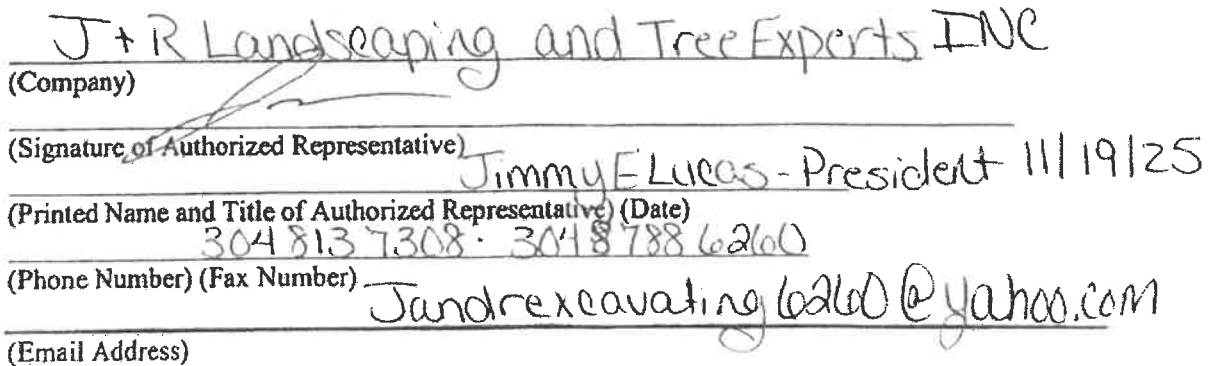 J + R Landscaping and Tree Experts INC
(Company)
(Signature of Authorized Representative)
Jimmy E Lucas - President 11/19/25
(Printed Name and Title of Authorized Representative) (Date)
304 813 7308 · 304 8788 6260
(Phone Number) (Fax Number)
Jandrexcavating6260@yahoo.com
(Email Address)